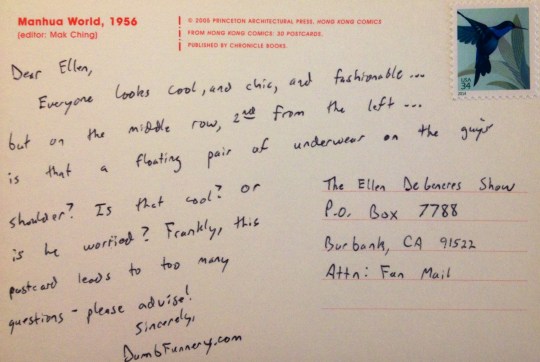 Manhua World, 1956
(editor: Mak Ching)
© 2005 PRINCETON ARCHITECTURAL PRESS, HONG KONG COMICS
FROM HONG KONG COMICS: 30 POSTCARDS.
PUBLISHED BY CHRONICLE BOOKS.
USA
34
Dear Ellen,
Everyone looks cool, and chic, and fashionable...
but on the middle row, 2nd from the left...
is that a floating pair of underwear on the guy's
shoulder? Is that cool? Or
is he worried? Frankly, this
postcard leads to too many
questions - please advise!
Sincerely,
DumbFunnery.com
The Ellen DeGeneres Show
P.O. Box 7788
Burbank, CA 91522
Attn: Fan Mail